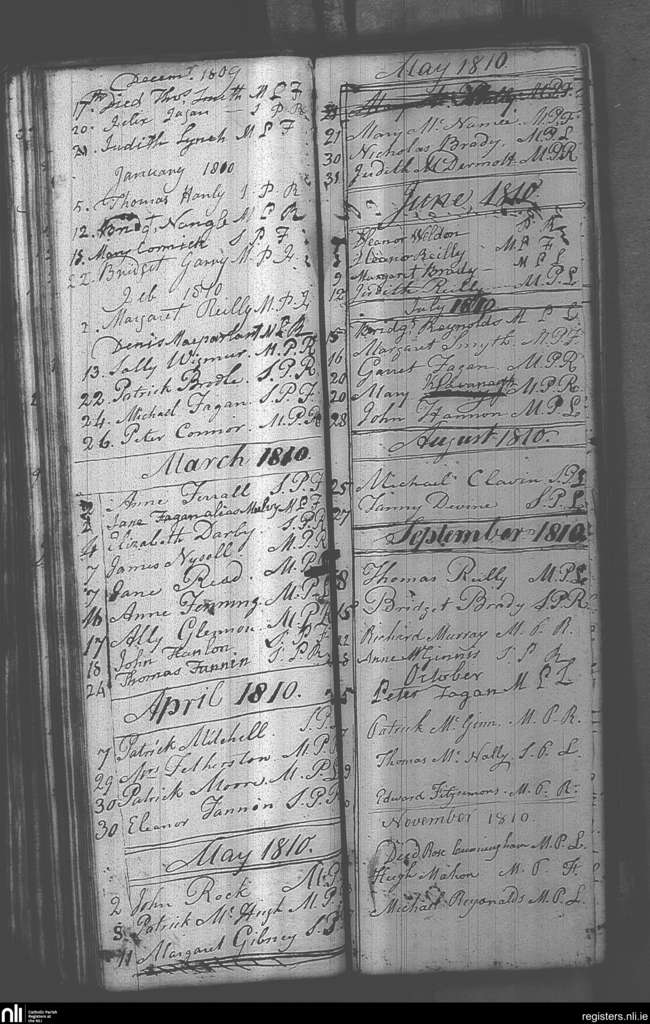 Decemr. 1809
17th Died Thos. Smith M P F
20. Peter Fagan - S P R
21. Judith Lynch M P F
January 1810
5. Thomas Hanly S P R
12. Nangle M P R
15. Mary Cormick S P F
22. Bridget Garry M P F
Feb 1810
2. Margaret Reilly M.P.F
Denis M P R
13. Sally M.P.R
22. Patrick Bridle. S.P.R
24. Michael Fagan. S.P.F
26. Peter Connor. M.P.R
March 1810.
Anne Terrall S.P.F
Jane Fagan alias M P F
4 Elizabeth Darby. S.P.F
7 James Nysell M.P.R
7 Jane Read. M.P.
16 Anne Fenning. M.P.L
17 Ally Glennon. M.P.L
18 John Hanlon. S.P.F
24 Thomas Fannin S.P.R
April 1810.
7 Patrick Mitchell. S.P.
29 Mrs Fetherston M.P.
30 Patrick Moore M.P.
30 Eleanor Fannin S.P.R
May 1810.
2 John Rock M.P.
8 Patrick Mc. Hugh M.P.
11 Margaret Gibney S.P.
May 1810
M.P.F
21 Mary Mc. Namee M.P.F.
30 Nicholas Brady, M.P.L
31 Judith McDermott M.P.R
June 1810
Eleanor Weldon S P R
Eleanor Reilly - M P F
9 Margaret Brady - M P L
12 Judith Reilly - M.P.L
July 1810
15 Bridgt. Reynolds M P L
16 Margaret Smyth. M.P.F
20 Garret Fagan. M.P.R
20 Mary Kavanagh M.P.R
28 John Hannon M.P.L
August 1810.
25 Michael Clavin S.P.L
27 Fanny Devine S.P.L
September 1810
8 Thomas Reilly M.P.L
16 Bridget Brady S.P.R
22 Richard Murray M.P.R.
Anne McGinnis S P R
October
Peter Fagan M P L
Patrick Mc. Genn. M.P.R.
Thomas Mc. Nally S.P.L.
Edward Fitzsimons. M.P.R.
November 1810.
Died Rose Cunningham M.P.L.
Hugh Mahon M.P.F.
Michael Reynolds M.P.L.
nli
Catholic Parish
Registers at
the NLI
registers.nli.ie